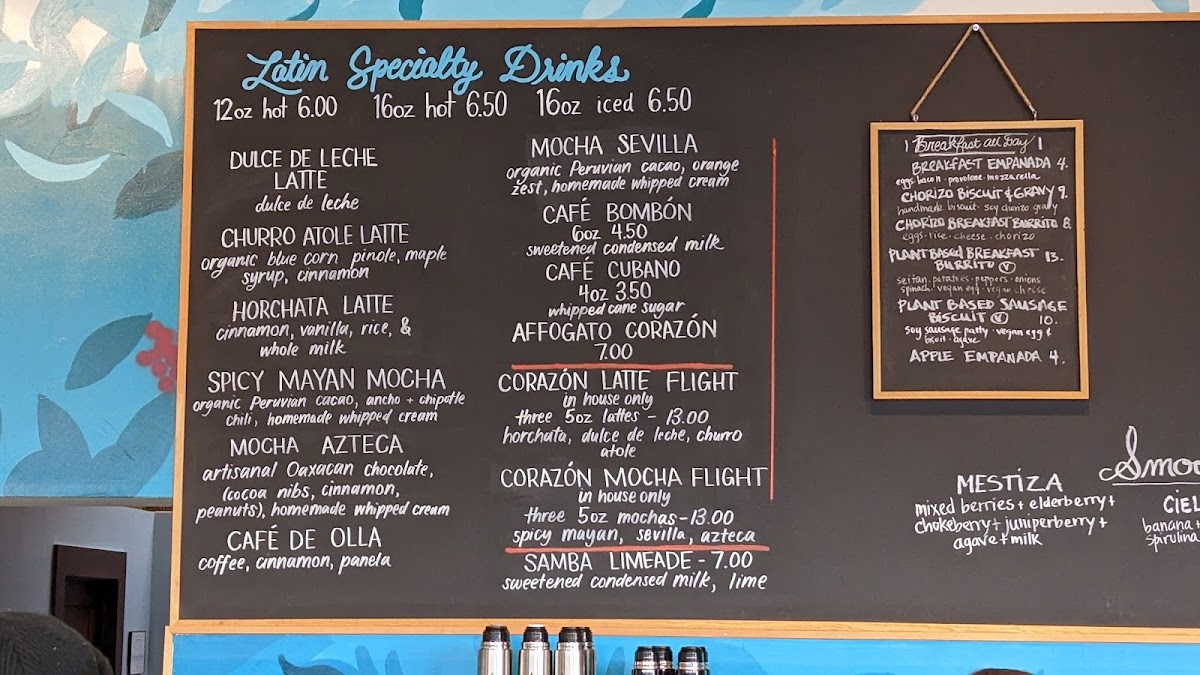 Latin Specialty Drinks
12oz hot 6.00 16oz hot 6.50 16oz iced 6.50
DULCE DE LECHE
LATTE
dulce de leche
CHURRO ATOLE LATTE
organic blue corn pinole, maple
syrup, cinnamon
HORCHATA LATTE
cinnamon, vanilla, rice, &
whole milk
SPICY MAYAN MOCHA
organic Peruvian cacao, ancho + chipotle
chili, homemade whipped cream
MOCHA AZTECA
artisanal Oaxacan chocolate,
(cocoa nibs, cinnamon,
peanuts), homemade whipped cream
CAFÉ DE OLLA
coffee, cinnamon, panela
MOCHA SEVILLA
organic Peruvian cacao, orange
zest, homemade whipped cream
CAFÉ BOMBÓN
6oz 4.50
sweetened condensed milk
CAFÉ CUBANO
4oz 3.50
whipped cane sugar
AFFOGATO CORAZÓN
7.00
CORAZÓN LATTE FLIGHT
in house only
three 5oz lattes - 13.00
horchata, dulce de leche, churro
atole
CORAZÓN MOCHA FLIGHT
in house only
three 5oz mochas - 13.00
spicy mayan, sevilla, azteca
SAMBA LIMEADE - 7.00
sweetened condensed milk, lime
Breakfast all Day
BREAKFAST EMPANADA 4.
eggs bacon · provolone · mozzarella
CHORIZO BISCUIT & GRAVY 9.
handmade biscuit · soy chorizo gravy
CHORIZO BREAKFAST BURRITO 8.
eggs · rice · cheese · chorizo
PLANT BASED BREAKFAST 13.
BURRITO V
seitan · potatoes · peppers · onions
spinach · vegan egg · vegan cheese
PLANT BASED SAUSAGE
BISCUIT V 10.
soy sausage patty · vegan egg &
biscuit · agave
APPLE EMPANADA 4.
Smoo
MESTIZA
mixed berries + elderberry +
chokeberry + juniperberry +
agave + milk
CIEL
banana +
spirulina